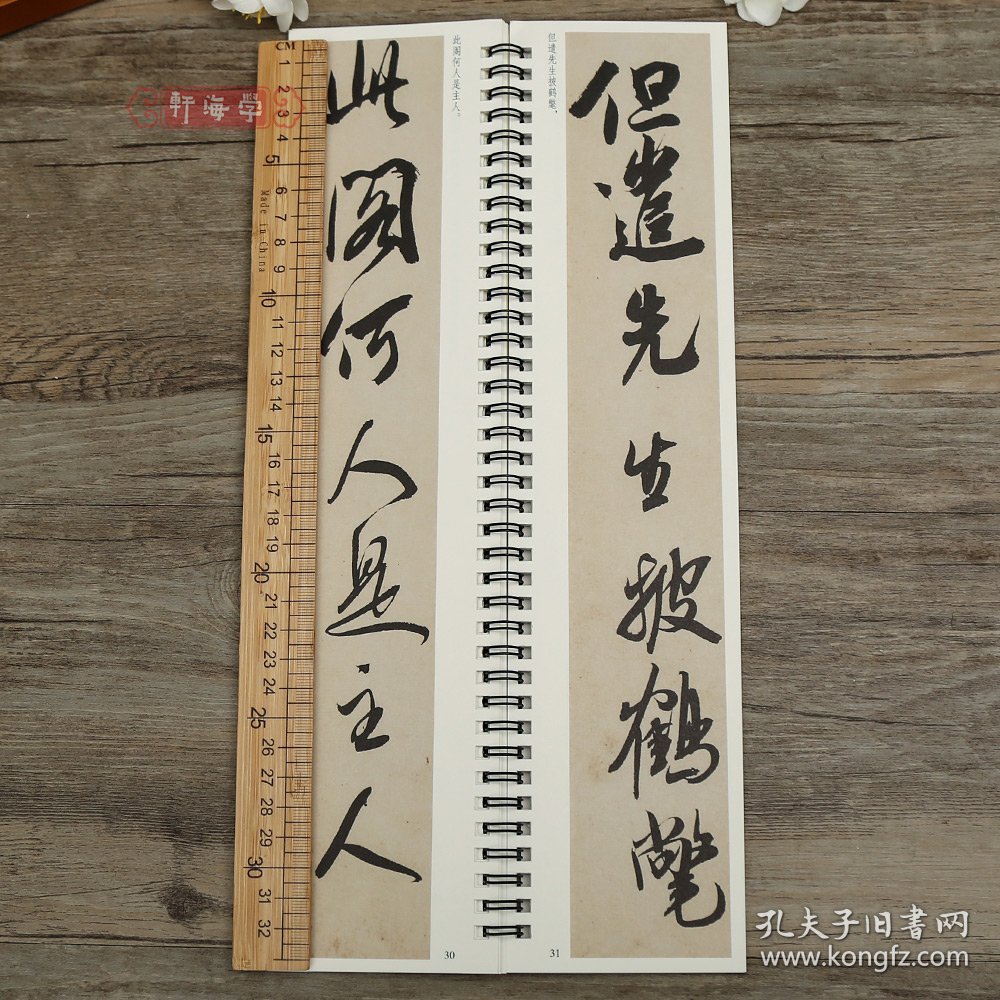 軒海學
CM
1
2
3
4
5
6
7
8
9
10
11
12
13
14
15
16
17
18
19
20
21
22
23
24
25
26
27
28
29
30
31
32
Made in China
此閣何人是主人
此阁何人是主人。
30
但遣先生披鹤氅，
但遣先生披鶴氅
31
孔夫子旧書网
www.kongfz.com